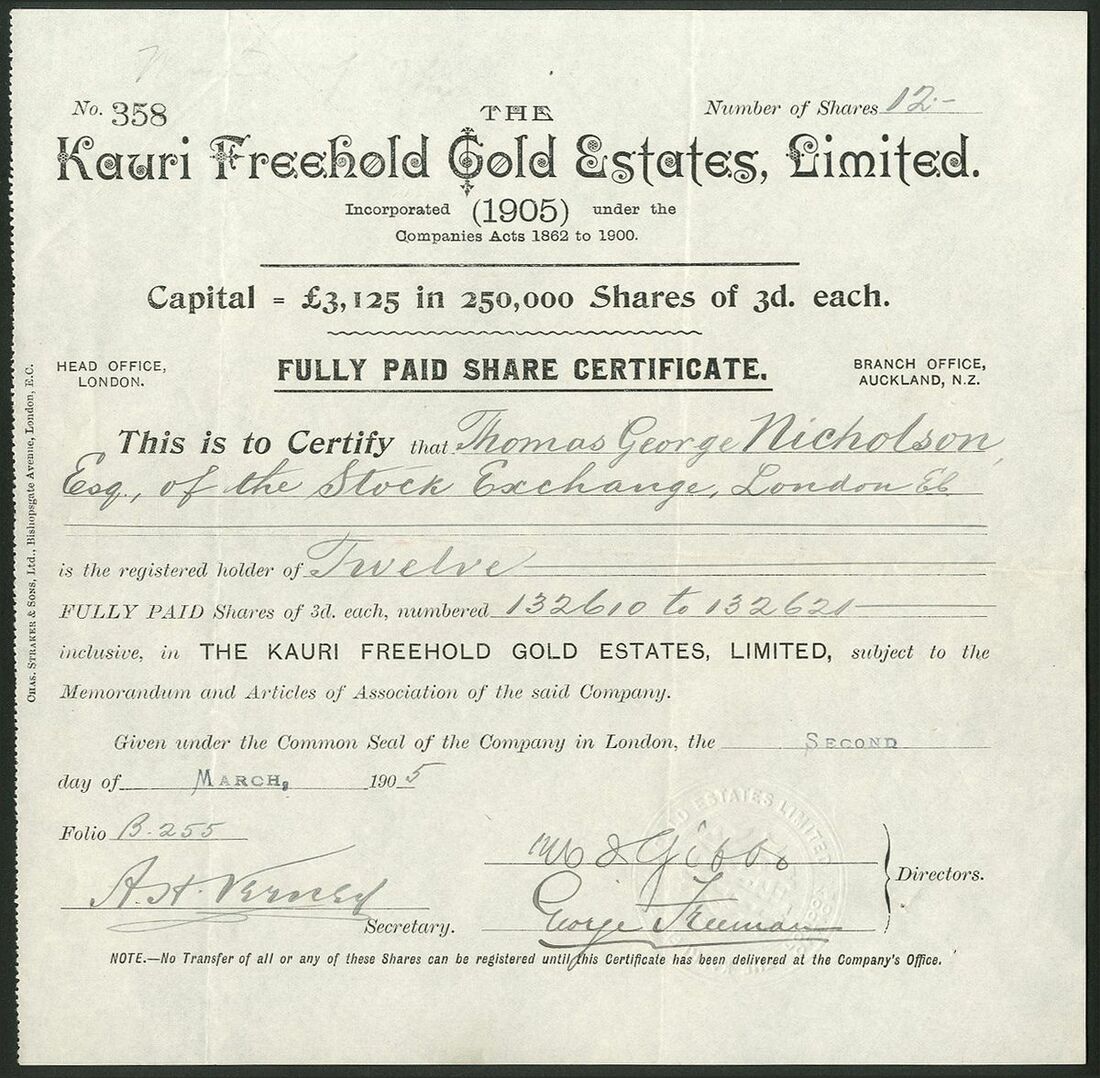 No. 358
Number of Shares 12.-
THE
Kauri Freehold Gold Estates, Limited.
Incorporated (1905) under the
Companies Acts 1862 to 1900.
Capital = £3,125 in 250,000 Shares of 3d. each.
HEAD OFFICE,
LONDON.
FULLY PAID SHARE CERTIFICATE.
BRANCH OFFICE,
AUCKLAND, N.Z.
This is to Certify that Thomas George Nicholson,
Esq., of the Stock Exchange, London
is the registered holder of Twelve
FULLY PAID Shares of 3d. each, numbered 132610 to 132621
inclusive, in THE KAURI FREEHOLD GOLD ESTATES, LIMITED, subject to the
Memorandum and Articles of Association of the said Company.
Given under the Common Seal of the Company in London, the SECOND
day of MARCH, 1905
Folio B. 255
Gibbs
George Freeman
Directors.
A. H.
Secretary.
NOTE.—No Transfer of all or any of these Shares can be registered until this Certificate has been delivered at the Company's Office.
CHAS. STRAKER & SONS, Ltd., Bishopsgate Avenue, London, E.C.
ESTATES LIMITED